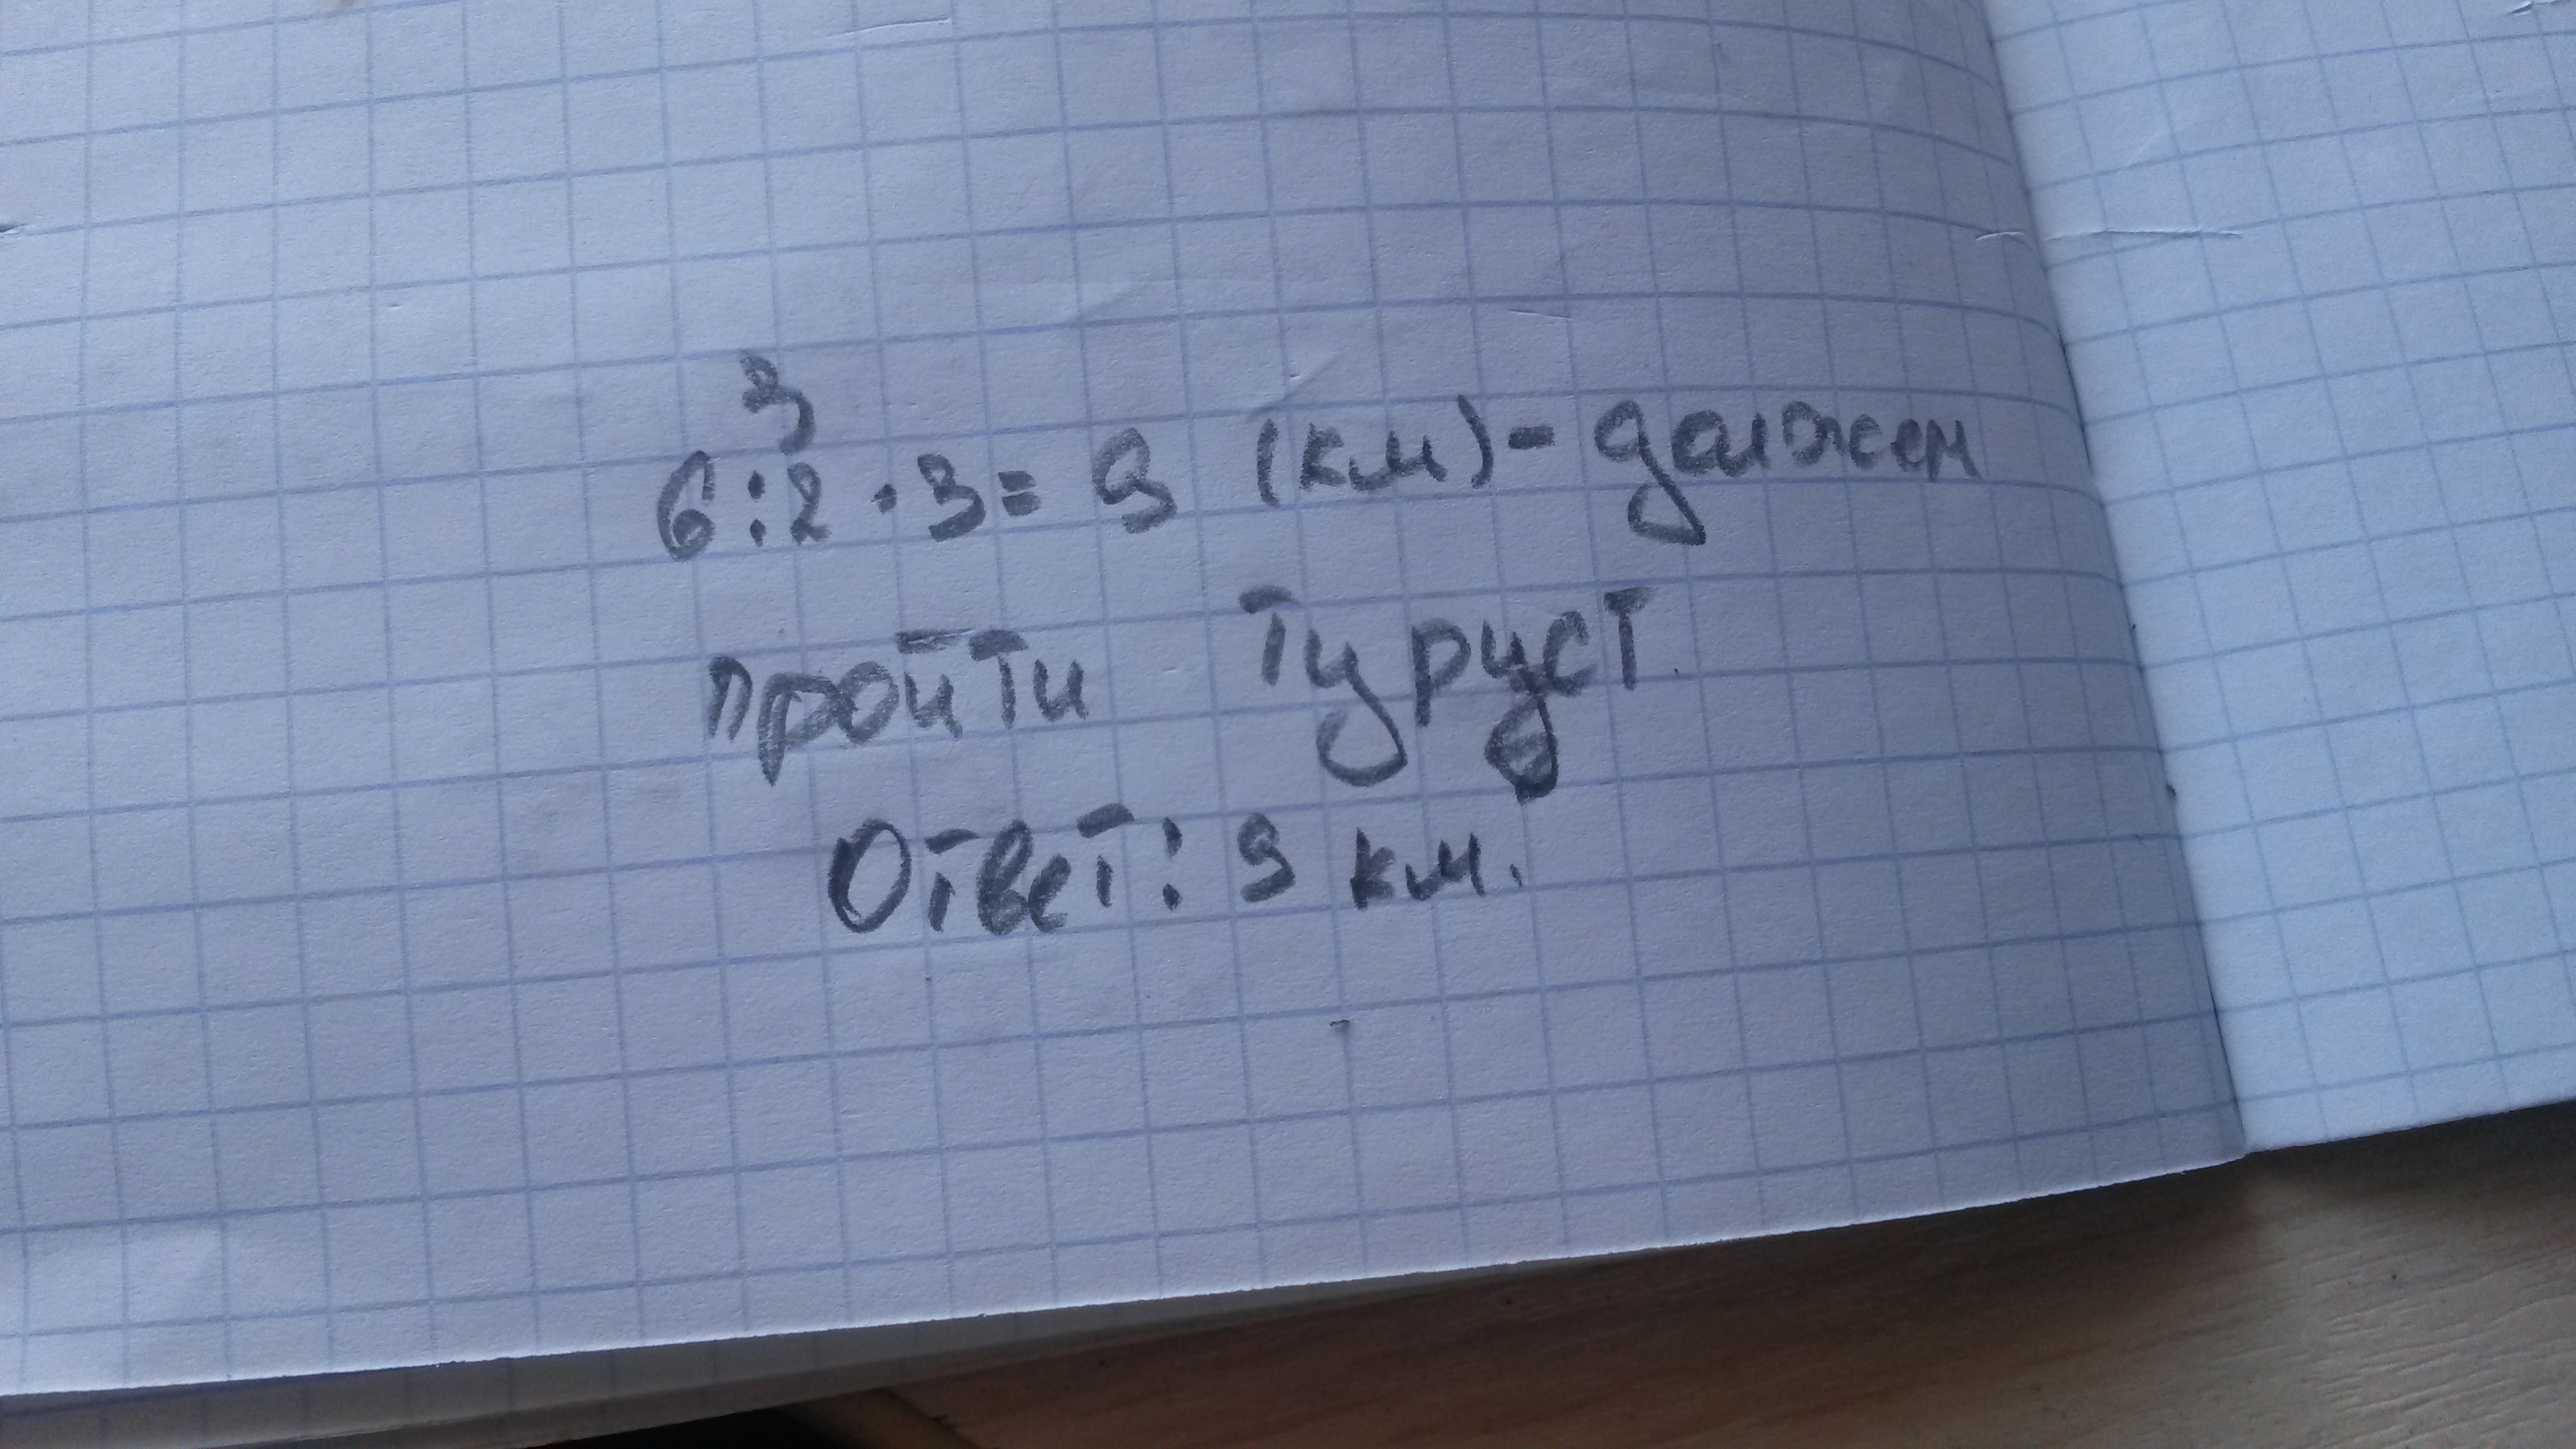 3
6:2·3=9 (км)-должен
пройти туруст
Ответ: 9 км.